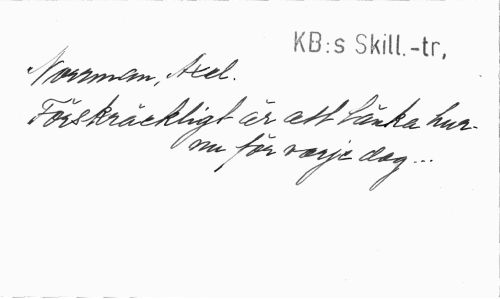 KB:s Skill.-tr,
Norrman, Axel.
Förskräckligt är att tänka hur-
nu för varje dag...